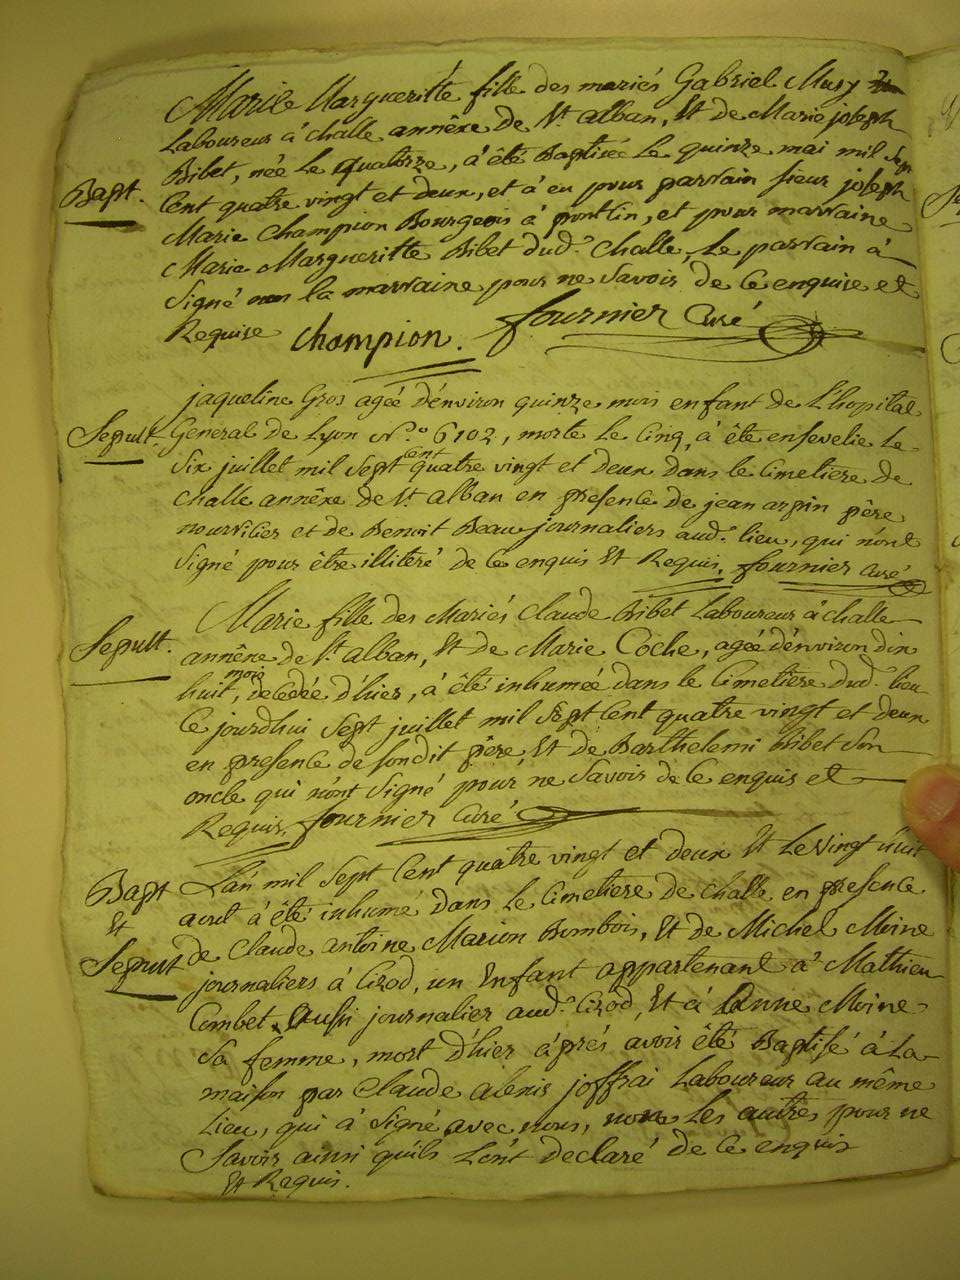 Marie Margueritte fille des mariés Gabriel Musy
Laboureur à challe annêxe de St. alban, Et de Marie joseph
Bibet, née le quatorze, à été Baptisée le quinze mai mil sept
Bapt. Cent quatre vingt et deux, et à eu pour parrain sieur joseph
Marie Champion Bourgeois à pontin, et pour marraine
Marie Margueritte Bibet dud. Challe, Le parrain à
signé non la marraine pour ne savoir de ce enquise et
Requise Champion. fournier Curé
jaqueline Gros agée d'environ quinze mois enfant de L'hopital
Sepult. General de Lyon N.° 6102, morte le cinq, à été ensevelie le
six juillet mil sept cent quatre vingt et deux dans le Cimetiere de
Challe annêxe de St. alban en presence de jean arpin père
nourricier et de Benoit Beau journaliers aud. lieu, qui n'ont
signé pour être illitéré de ce enquis Et Requis. fournier Curé
Marie fille des Mariés Claude Bibet Laboureur à challe
Sepult. annêxe de St. alban, Et de Marie Coche, agée d'environ dix
huit mois, decedée d'hier, à été inhumée dans le Cimetière dud. lieu
Ce jourdhui sept juillet mil sept Cent quatre vingt et deux
en presence de sondit père Et de Barthelemi Bibet son
oncle qui n'ont signé pour ne savoir de ce enquis et
Requis. fournier Curé
Bapt L'an mil sept Cent quatre vingt et deux Et le vingt huit
Et avril à été inhumé dans le Cimetiere de challe en presence
Sepult de Claude antoine Marion Bombois, Et de Michel Moine
journaliers à Cizod, un Enfant appartenant à Mathieu
Combet Aussi journalier aud. Cizod, Et à Anne Moine
sa femme, mort d'hier après avoir été Baptisé à La
maison par Claude alexis joffrai Laboureur au même
Lieu, qui à signé avec nous, non Les autres pour ne
savoir ainsi qu'ils L'ont declaré de ce enquis
Et Requis.